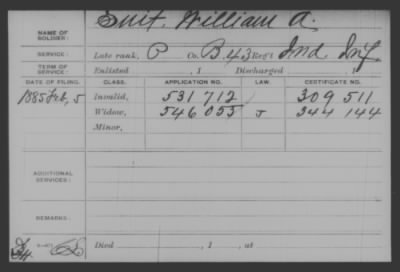 NAME OF SOLDIER: Smit, William A.
SERVICE: Late rank, P Co. B, 43 Reg't Ind. Inf.
TERM OF SERVICE: Enlisted , 1 Discharged
DATE OF FILING. CLASS. APPLICATION NO. LAW. CERTIFICATE NO.
1885 Feb, 5 Invalid, 531 712 309 511
Widow, 546 055 J 344 144
Minor,
ADDITIONAL SERVICES:
REMARKS:
Died , 1 , at